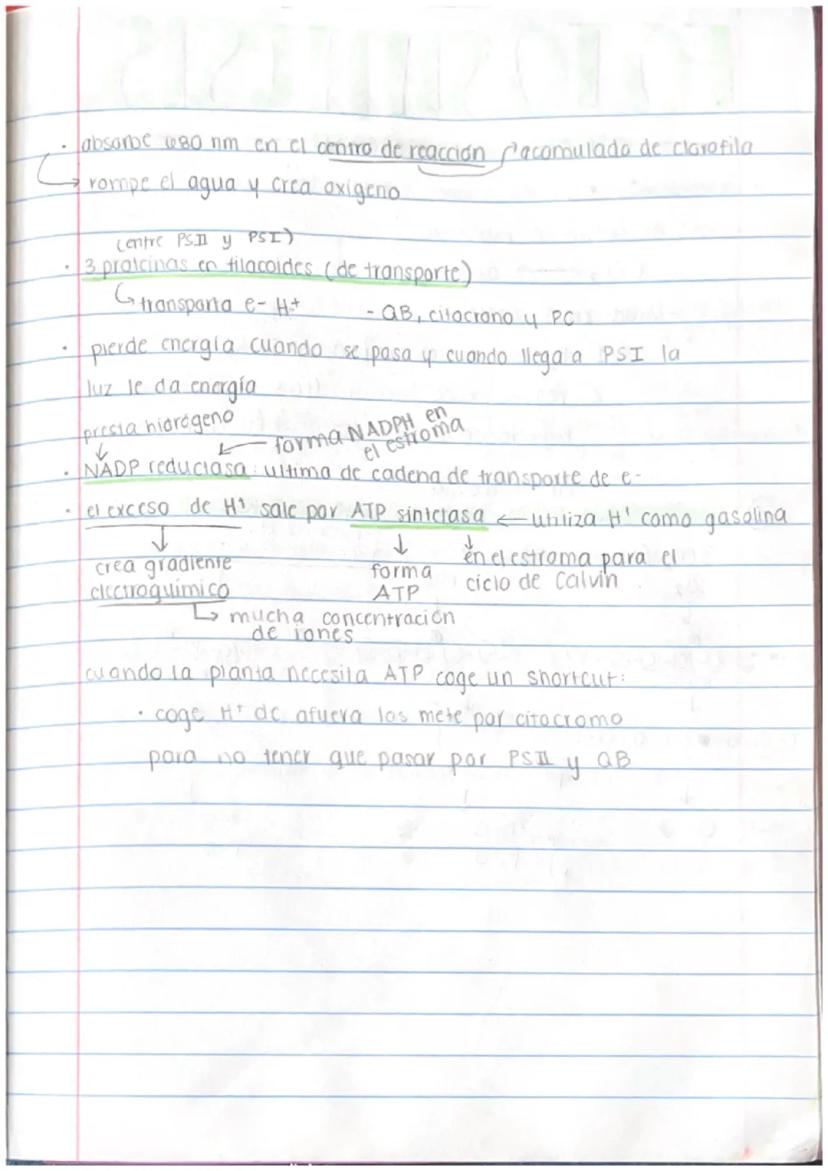 · absorbe 680 nm en el centro de reacción acomulado de clorofila
→ rompe el agua y crea oxígeno
(entre PSII y PSI)
· 3 proteínas en tilacoides (de transporte)
↳ transporta e- H+ - QB, citocromo y PC
· pierde energía cuando se pasa y cuando llega a PSI la
luz le da energía
presta hidrógeno ← forma NADPH en el estroma
· NADP reductasa: ultima de cadena de transporte de e-
· el exceso de H+ sale por ATP sintetasa ← utiliza H+ como gasolina
↓ ↓ ↓
crea gradiente forma en el estroma para el
electroquímico ATP ciclo de Calvin
↳ mucha concentración
de iones
cuando la planta necesita ATP coge un shortcut:
· coge H+ de afuera los mete por citocromo
para no tener que pasar por PSII y QB